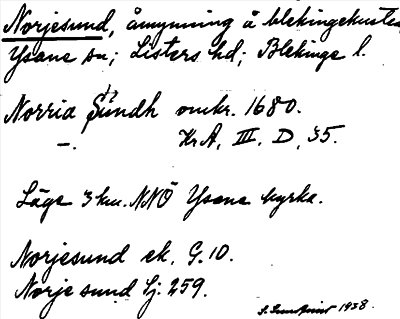 Norjesund, åmynning å blekingekusten
Ysane sn; Listers hd; Blekinge l.
Norria Sundh omkr. 1680.
–. Kr A, III. D, 35.
Läge 3 km. NNÖ Ysane kyrka.
Norjesund ek. G. 10.
Norje sund Lj. 259.
1938.